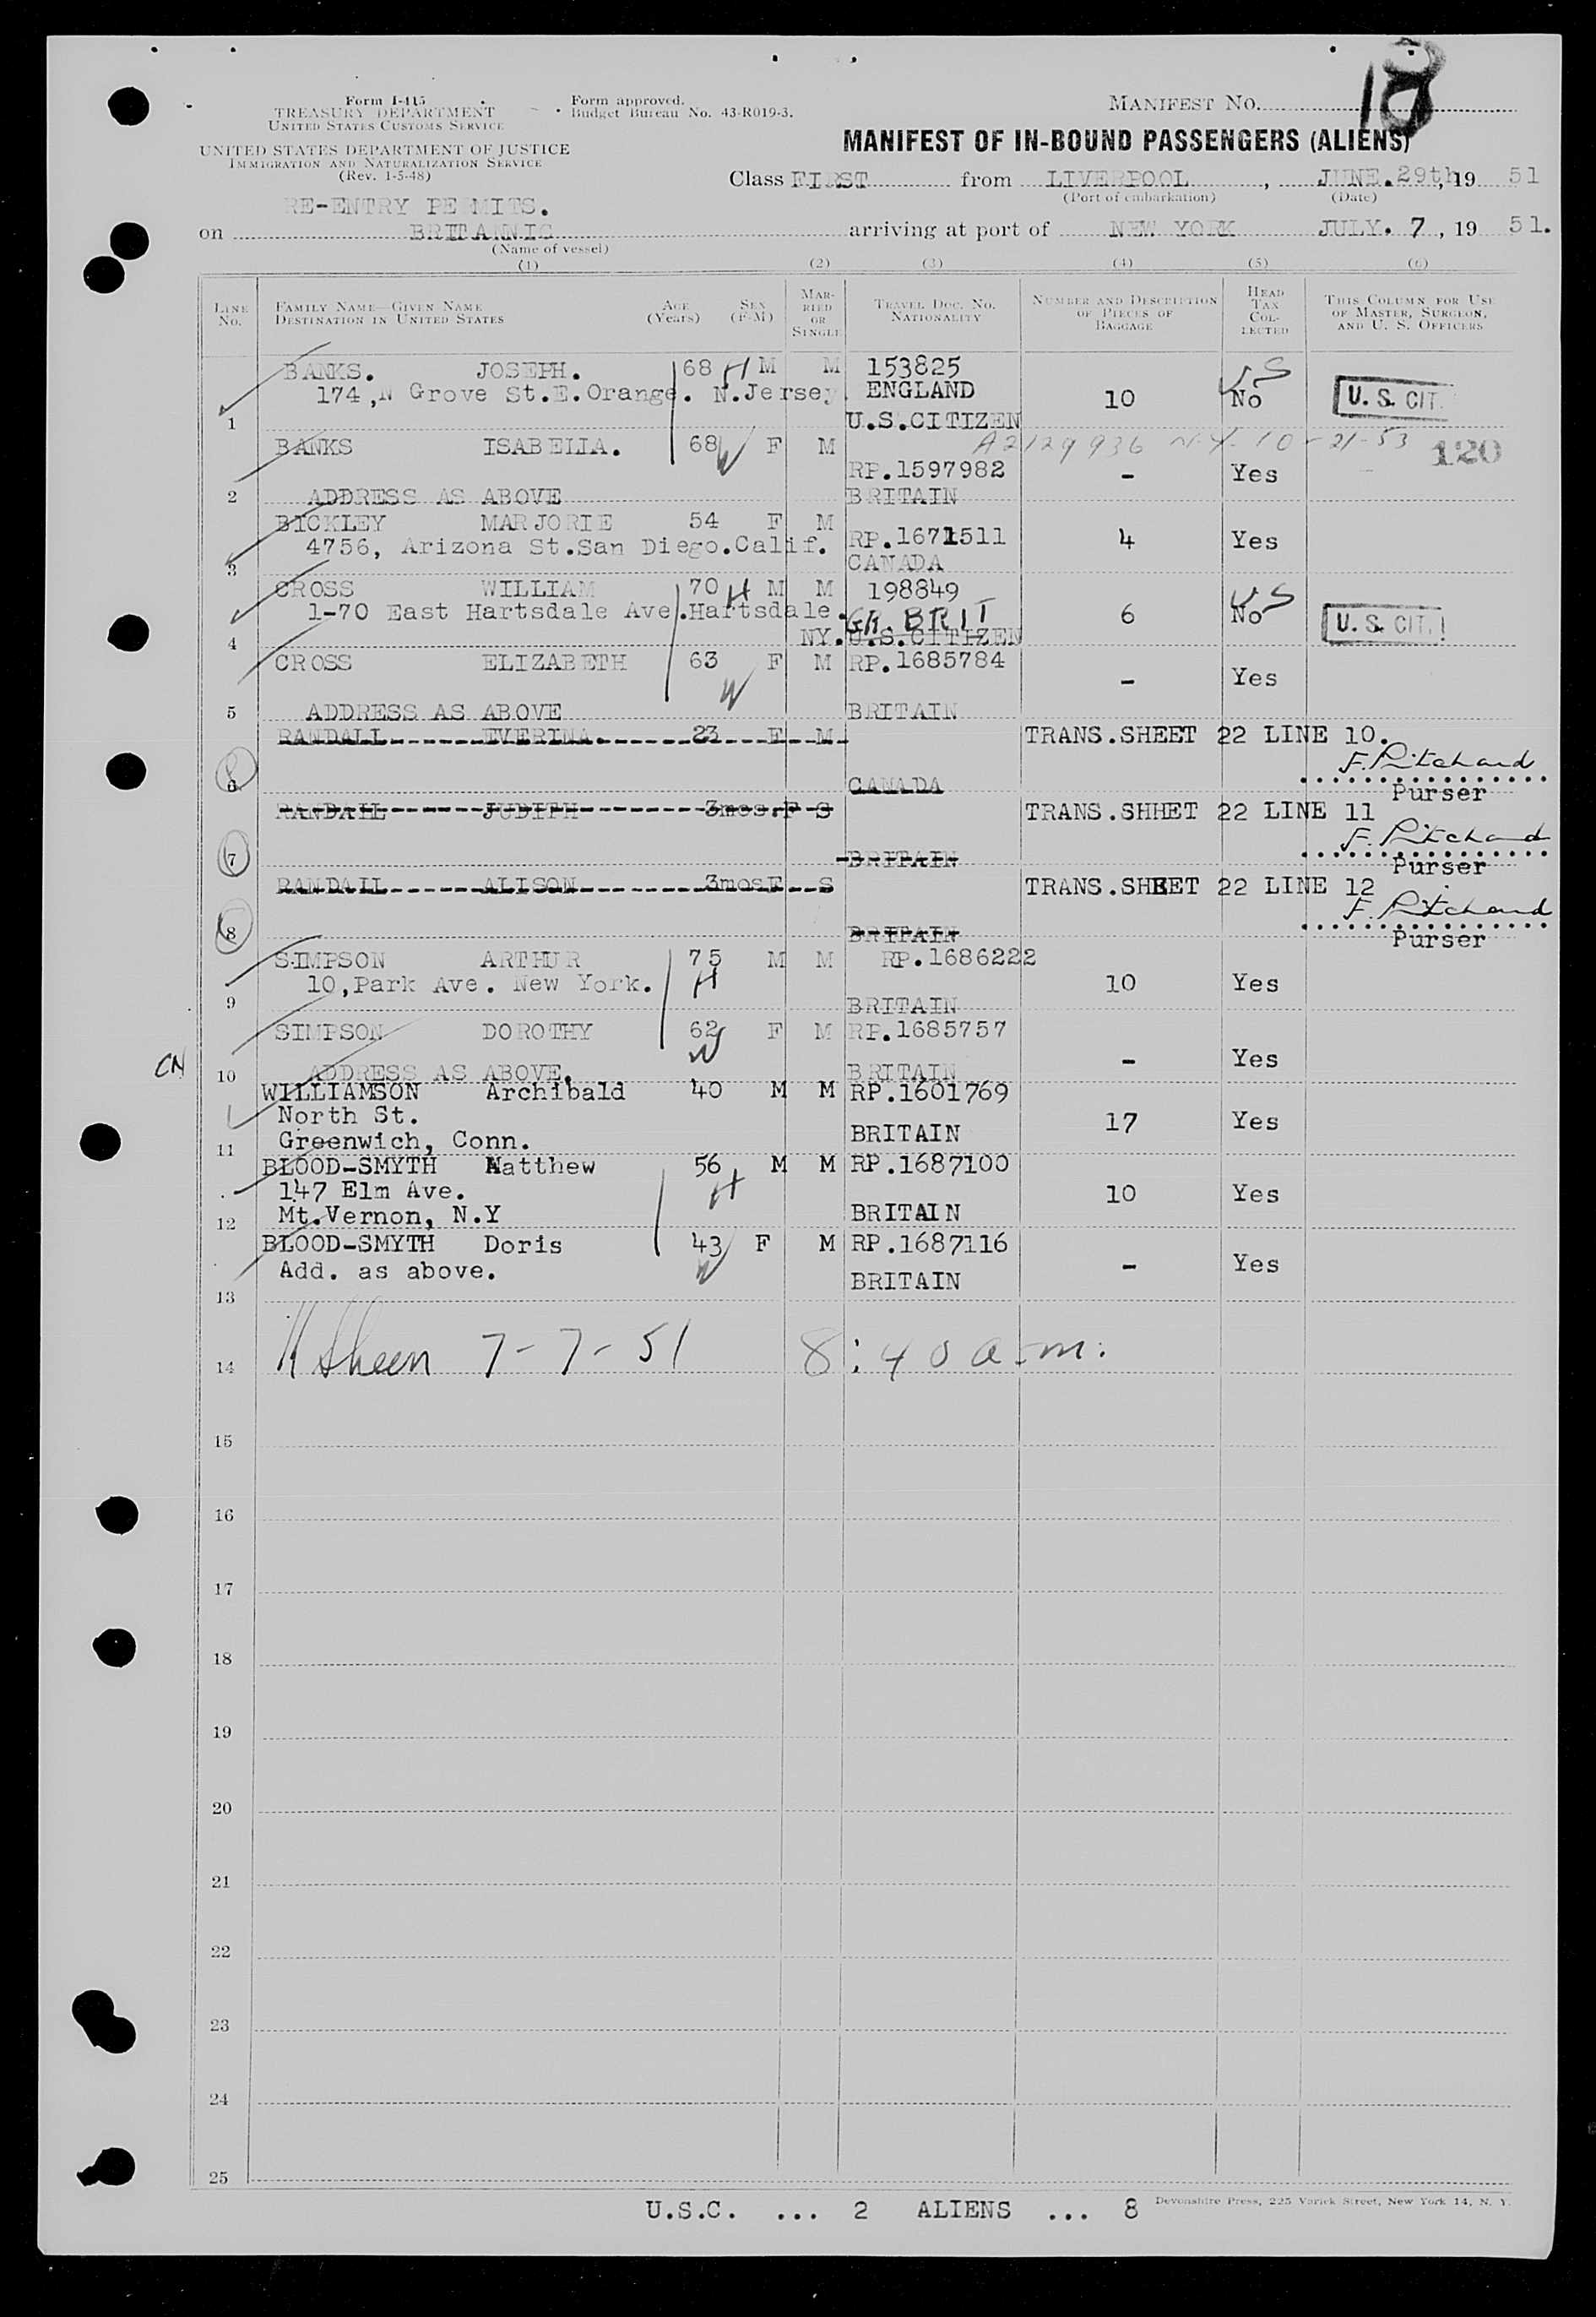 18
Form I-415
TREASURY DEPARTMENT
UNITED STATES CUSTOMS SERVICE
UNITED STATES DEPARTMENT OF JUSTICE
IMMIGRATION AND NATURALIZATION SERVICE
(Rev. 1-5-48)
Form approved.
Budget Bureau No. 43-R019-3.
MANIFEST NO.
MANIFEST OF IN-BOUND PASSENGERS (ALIENS)
Class FIRST from LIVERPOOL, JUNE. 29th, 19 51
(Port of embarkation) (Date)
RE-ENTRY PERMITS.
on BRITANNIC arriving at port of NEW YORK JULY. 7, 19 51.
(Name of vessel)
(1) (2) (3) (4) (5) (6)
LINE NO. FAMILY NAME—GIVEN NAME DESTINATION IN UNITED STATES AGE (Years) SEX (F-M) MARRIED OR SINGLE TRAVEL DOC. NO. NATIONALITY NUMBER AND DESCRIPTION OF PIECES OF BAGGAGE HEAD TAX COLLECTED THIS COLUMN FOR USE OF MASTER, SURGEON, AND U. S. OFFICERS
BANKS. JOSEPH. 68 H M M 153825 US
174,N Grove St.E.Orange. N.Jersey. ENGLAND 10 No U. S. CIT.
1 U.S.CITIZEN
BANKS ISABELLA. 68 W F M A2129936 N.Y. 10-21-53 120
RP.1597982 - Yes
2 ADDRESS AS ABOVE BRITAIN
BICKLEY MARJORIE 54 F M
4756, Arizona St.San Diego.Calif. RP.1671511 4 Yes
3 CANADA
CROSS WILLIAM 70 H M M 198849 US
1-70 East Hartsdale Ave.Hartsdale. GR. BRIT 6 No U. S. CIT.
4 NY. U.S.CITIZEN
CROSS ELIZABETH 63 W F M RP.1685784
- Yes
5 ADDRESS AS ABOVE BRITAIN
RANDALL EVERINA. 23 F M TRANS.SHEET 22 LINE 10.
F. Pritchard
6 CANADA Purser
RANDALL JUDITH 3mos.F S TRANS.SHHET 22 LINE 11
F. Pritchard
7 BRITAIN Purser
RANDALL ALISON 3mosF S TRANS.SHEET 22 LINE 12
F. Pritchard
8 BRITAIN Purser
SIMPSON ARTHUR 75 M M RP.1686222
10,Park Ave. New York. H 10 Yes
9 BRITAIN
SIMPSON DOROTHY 62 F M RP.1685757
W - Yes
CN 10 ADDRESS AS ABOVE. BRITAIN
WILLIAMSON Archibald 40 M M RP.1601769
North St. 17 Yes
11 Greenwich, Conn. BRITAIN
BLOOD-SMYTH Matthew 56 M M RP.1687100
147 Elm Ave. H 10 Yes
12 Mt.Vernon, N.Y BRITAIN
BLOOD-SMYTH Doris 43 F M RP.1687116
Add. as above. W - Yes
13 BRITAIN
14 Sheen 7-7-51 8:40 a.m.
15
16
17
18
19
20
21
22
23
24
25
U.S.C. ... 2 ALIENS ... 8 Devonshire Press, 225 Varick Street, New York 14, N. Y.